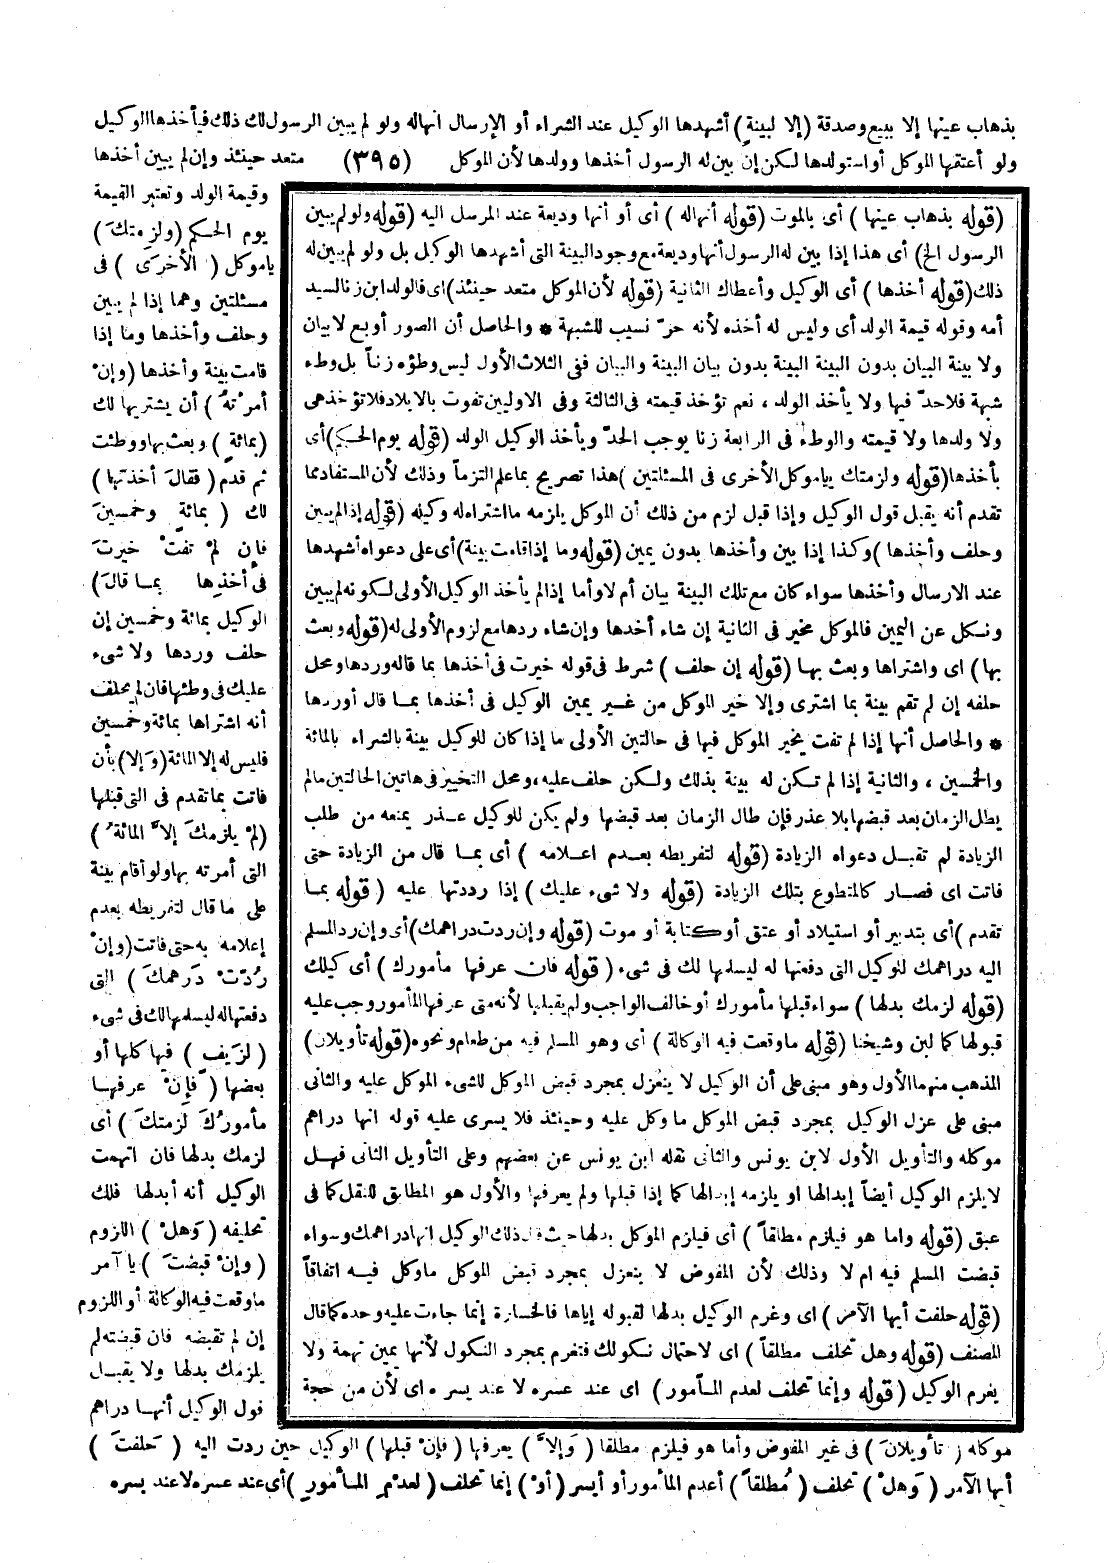 بذهاب عينها إلا ببيع وصدقة (إلا لبينةٍ) أشهدها الوكيل عند الشراء أو الإرسال انهاله ولو لم يبين الرسول لك ذلك فيأخذها الوكيل
ولو أعتقها الموكل أو استولدها لكن إن بين له الرسول أخذها وولدها لأن الموكل (٣٩٥) متعد حينئذ وإن لم يبين أخذها
وقيمة الولد وتعتبر القيمة
يوم الحكم (ولزمتكَ)
ياموكل (الأخرَى) فى
مسئلتين وهما إذا لم يبين
وحلف وأخذها وما إذا
قامت بينة وأخذها (وإنْ
أمرْتهُ) أن يشتريها لك
(بمائةٍ) وبعث بها ووطئت
ثم قدم (فقالَ أخذتها)
لك (بمائةٍ وخمسينَ
فإن لمْ تفتْ خيرتَ
فى أخذِها بما قالَ)
الوكيل بمائة وخمسين إن
حلف وردها ولا شىء
عليك فى وطئها فان لم يحلف
أنه اشتراها بمائة وخمسين
فليس له إلا المائة (وَإلا) بأن
فاتت بما تقدم فى التى قبلها
(لمْ يلزمكَ إلاَّ المائةُ)
التى أمرته بها ولو أقام بينة
على ما قال لتفريطه بعدم
إعلامه به حتى فاتت (وإنْ
رُدّتْ دَرهمكَ) التى
دفعتها له ليسلمها لك فى شىء
(لزَيفٍ) فيها كلها أو
بعضها (فإنْ عرفها
مأمورُكَ لزمتكَ) أى
لزمك بدلها فان اتهمت
الوكيل أنه أبدلها فلك
تحليفه (وَهلْ) اللزوم
(وإنْ قبضتَ) يا آمر
ماوقعت فيه الوكالة أو اللزوم
إن لم تقبضه فان قبضته لم
يلزمك بدلها ولا يقبل
قول الوكيل أنها دراهم
(قوله بذهاب عينها) أى بالموت (قوله أنهاله) أى أو أنها وديعة عند المرسل اليه (قوله ولو لم يبين
الرسول الخ) أى هذا إذا بين له الرسول أنها وديعة مع وجود البينة التى أشهدها الوكيل بل ولو لم يبين له
ذلك (قوله أخذها) أى الوكيل وأعطاك الثانية (قوله لأن الموكل متعد حينئذ) اى فالولد ابن زنا لسيد
أمه وقوله قيمة الولد أى وليس له أخذه لأنه حرّ نسيب للشبهة * والحاصل أن الصور أربع لا بيان
ولا بينة البيان بدون البينة البينة بدون بيان البينة والبيان ففى الثلاث الأول ليس وطؤه زناً بل وطء
شبهة فلاحدّ فيها ولا يأخذ الولد ، نعم تؤخذ قيمته فى الثالثة وفى الاوليين تفوت بالايلاد فلا تؤخذ هى
ولا ولدها ولا قيمته والوطء فى الرابعة زنا يوجب الحدّ ويأخذ الوكيل الولد (قوله يوم الحكم) أى
بأخذها (قوله ولزمتك ياموكل الأخرى فى المسئلتين) هذا تصريح بما علم التزماً وذلك لأن المستفاد مما
تقدم أنه يقبل قول الوكيل وإذا قبل لزم من ذلك أن الموكل يلزمه ما اشتراه له وكيله (قوله إذا لم يبين
وحلف وأخذها) وكذا إذا بين وأخذها بدون يمين (قوله وما إذا قامت بينة) أى على دعواه أشهدها
عند الارسال وأخذها سواء كان مع تلك البينة بيان أم لا وأما إذا لم يأخذ الوكيل الأولى لكونه لم يبين
ونكل عن اليمين فالموكل مخير فى الثانية إن شاء أخذها وإن شاء ردها مع لزوم الأولى له (قوله وبعث
بها) اى واشتراها وبعث بها (قوله إن حلف) شرط فى قوله خيرت فى أخذها بما قاله وردها ومحل
حلفه إن لم تقم بينة بما اشترى وإلا خير الموكل من غير يمين الوكيل فى أخذها بما قال أو ردها
* والحاصل أنها إذا لم تفت يخير الموكل فيها فى حالتين الأولى ما إذا كان للوكيل بينة بالشراء بالمائة
والخمسين ، والثانية إذا لم تكن له بينة بذلك ولكن حلف عليه ، ومحل التخيير فى هاتين الحالتين مالم
يطل الزمان بعد قبضها بلا عذر فإن طال الزمان بعد قبضها ولم يكن للوكيل عذر يمنعه من طلب
الزيادة لم تقبل دعواه الزيادة (قوله لتفريطه بعدم اعلامه) أى بما قال من الزيادة حتى
فاتت اى فصار كالمتطوع بتلك الزيادة (قوله ولا شىء عليك) إذا رددتها عليه (قوله بما
تقدم) أى بتدبير أو استيلاد أو عتق أو كتابة أو موت (قوله وإن ردت دراهمك) أى وإن رد المسلم
اليه دراهمك للوكيل التى دفعتها له ليسلمها لك فى شىء (قوله فان عرفها مأمورك) أى كيلك
(قوله لزمك بدلها) سواء قبلها مأمورك أو خالف الواجب ولم يقبلها لأنه متى عرفها المأمور وجب عليه
قبولها كما لبن وشيخنا (قوله ماوقعت فيه الوكالة) أى وهو المسلم فيه من طعام ونحوه (قوله تأويلان)
المذهب منهما الأول وهو مبنى على أن الوكيل لا ينعزل بمجرد قبض الموكل للشىء الموكل عليه والثانى
مبنى على عزل الوكيل بمجرد قبض الموكل ماوكل عليه وحينئذ فلا يسرى عليه قوله انها دراهم
موكله والتأويل الأول لابن يونس والثانى نقله ابن يونس عن بعضهم وعلى التأويل الثانى فهل
لا يلزم الوكيل أيضاً إبدالها او يلزمه إبدالها كما إذا قبلها ولم يعرفها والأول هو المطابق للنقل كما فى
عبق (قوله واما هو فيلزم مطلقاً) أى فيلزم الموكل بدلها حيث قال ذلك الوكيل انها دراهمك وسواء
قبضت المسلم فيه ام لا وذلك لأن المفوض لا ينعزل بمجرد قبض الموكل ماوكل فيه اتفاقاً
(قوله حلفت أيها الآمر) اى وغرم الوكيل بدلها لقبوله إياها فالخسارة إنما جاءت عليه وحده كما قال
المصنف (قوله وهل تحلف مطلقاً) اى لاحتمال نكولك فتغرم بمجرد النكول لأنها يمين تهمة ولا
يغرم الوكيل (قوله وإنما تحلف لعدم المأمور) اى عند عسره لا عند يسره اى لأن من حجة
موكله (تأويلانَ) فى غير المفوض وأما هو فيلزم مطلقا (وَإلاَّ) يعرفها (فإنْ قبلها) الوكيل حين ردت اليه (حَلفتَ)
أيها الآمر (وَهلْ) تحلف (مُطلقاً) أعدم المأمور أو أيسر (أوْ) إنما تحلف (لعدْمِ المأمورِ) أى عند عسره لا عند يسره